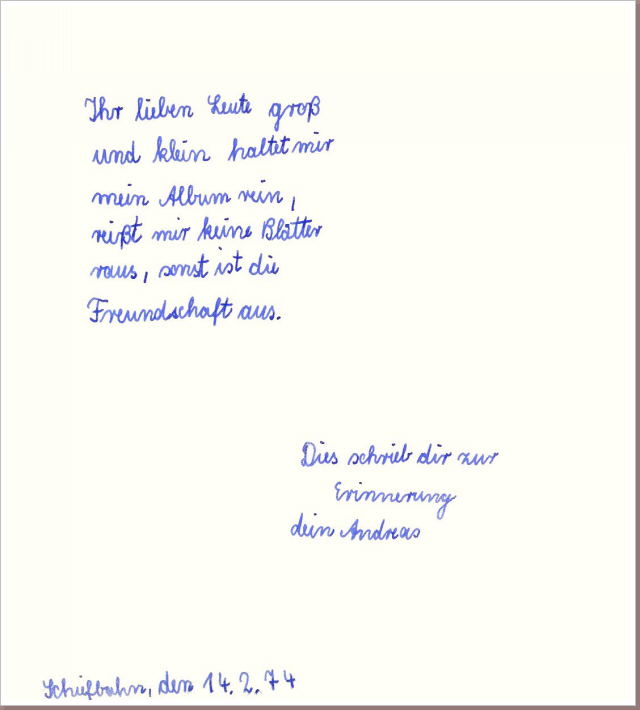 Ihr lieben Leute groß
und klein haltet mir
mein Album rein,
reißt mir keine Blätter
raus, sonst ist die
Freundschaft aus.
Dies schrieb dir zur
Erinnerung
dein Andreas
Schiefbahn, den 14.2.74